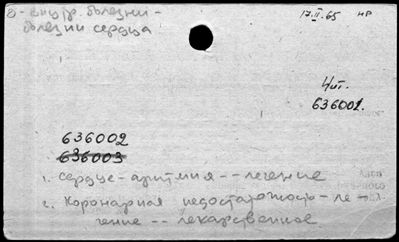 8 - внутр. болезни - 17.II.65 нр
болезни сердца
Чит.
636001.
636002
636003
1. Сердце - аритмия -- лечение
2. Коронарная недостаточность - ле-
чение -- лекарственное